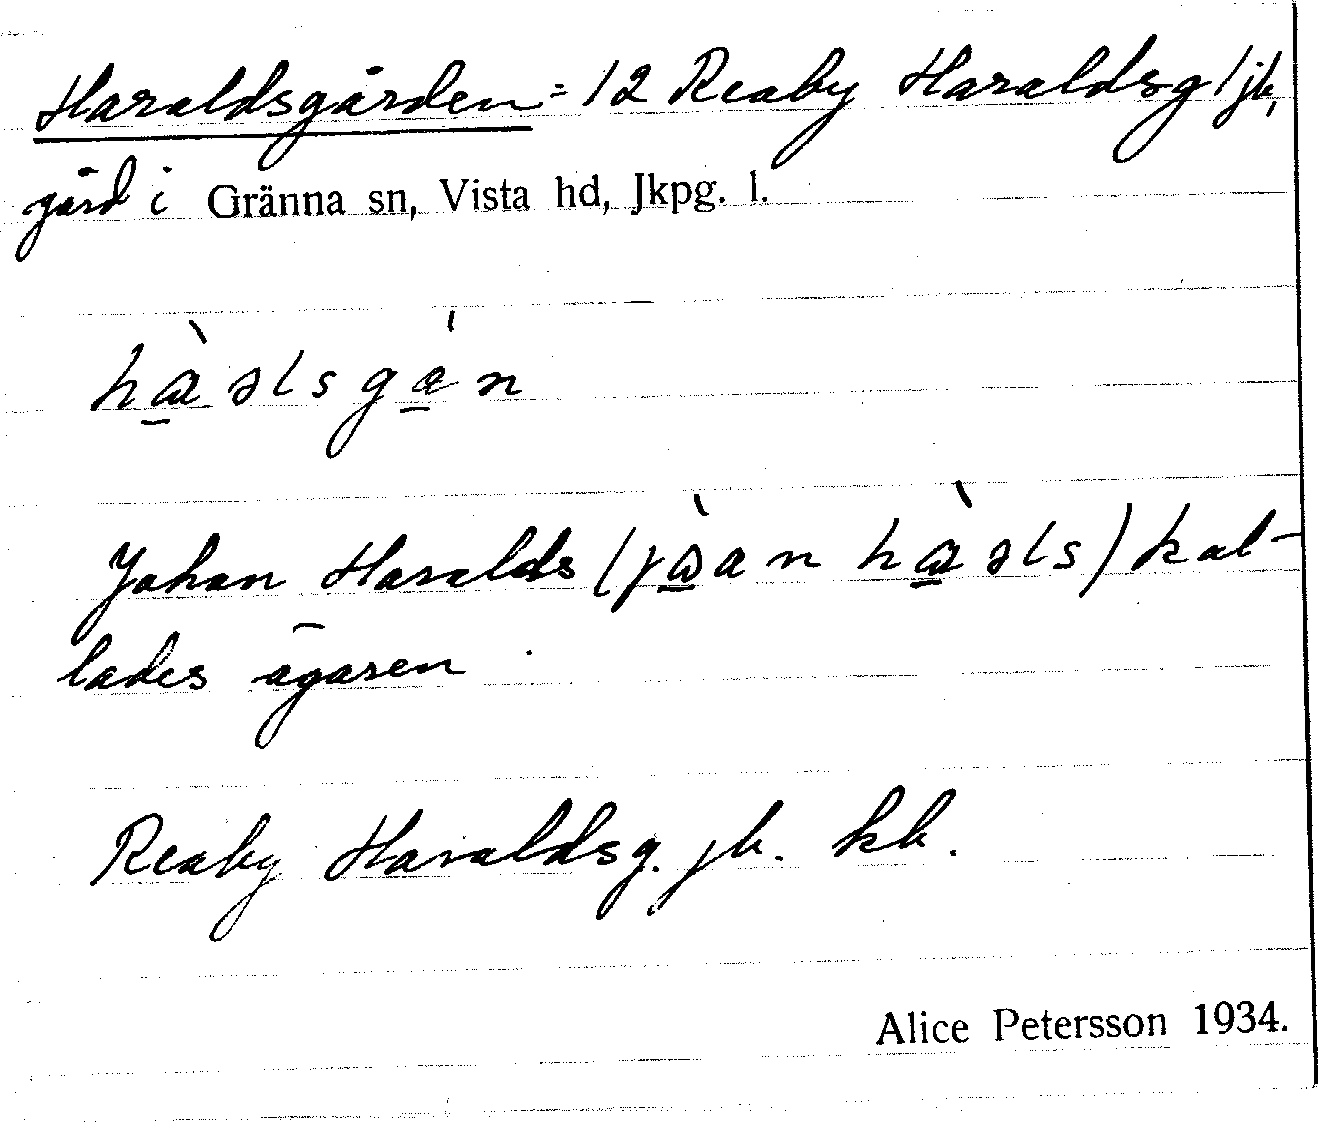 Haraldsgården = 12 Reaby Haraldsg/jb,
gård i Gränna sn, Vista hd, Jkpg. l.
Johan Haralds ( ) kal-
lades ägaren
Reaby Haraldsg. jb. kb.
Alice Petersson 1934.